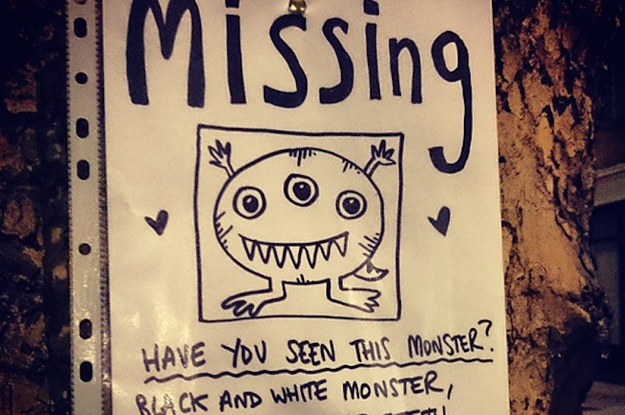 Missing
HAVE YOU SEEN THIS MONSTER?
BLACK AND WHITE MONSTER,